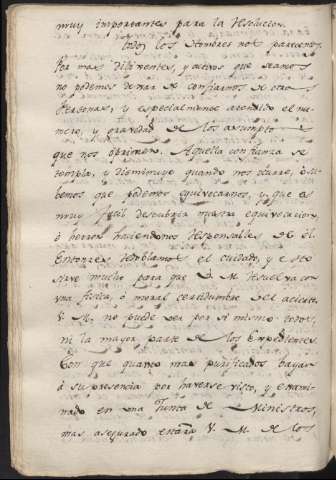 muy importantes para la resolucion.
Todos los Hombres nos parecemos.
Por mas diligentes, y activos que seamos
no podemos dexar de confiarnos de otras
Personas, y especialmente atendido el nu-
mero, y gravedad de los assumptos
que nos oprimen. Aquella confianza se
templa, y disminuye quando nos ocurre, o sa-
bemos que podemos equivocarnos, y que es
muy facil descubrir nuestra equivocacion,
ô herror haciendonos responsables de el.
Entonces redoblamos el cuidado, y esto
sirve mucho para que V. M. resuelva con
una fisica, ô moral certidumbre del acierto.
V. M. no puede ver por si mismo todos,
ni la mayor parte de los Expedientes.
Con que quanto mas purificados bajan
â su presencia por haverse visto, y exami-
nado en una Junta de Ministros,
mas asegurado estará V. M. de los